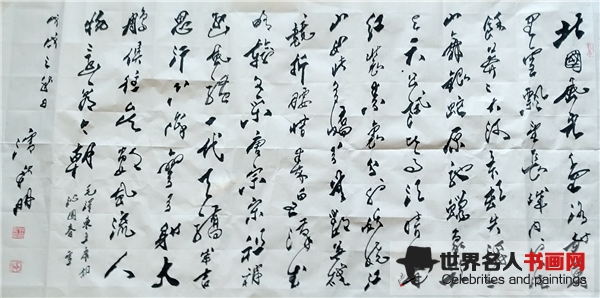 北國風光千里冰封萬
里雪飄望長城内外惟
餘莽莽大河上下頓失滔
山舞銀蛇原馳蠟象欲
與天公試比高須晴日
紅裝素裹分外妖嬈江
山如此多嬌引無數英雄
競折腰惜秦皇漢武
略輸文采唐宗宋祖稍
遜風騷一代天驕成吉
思汗只識彎弓射大
雕俱往矣數風流人
物還看今朝
毛澤東主席詞
沁園春 雪
世界名人书画网
Celebrities and paintings